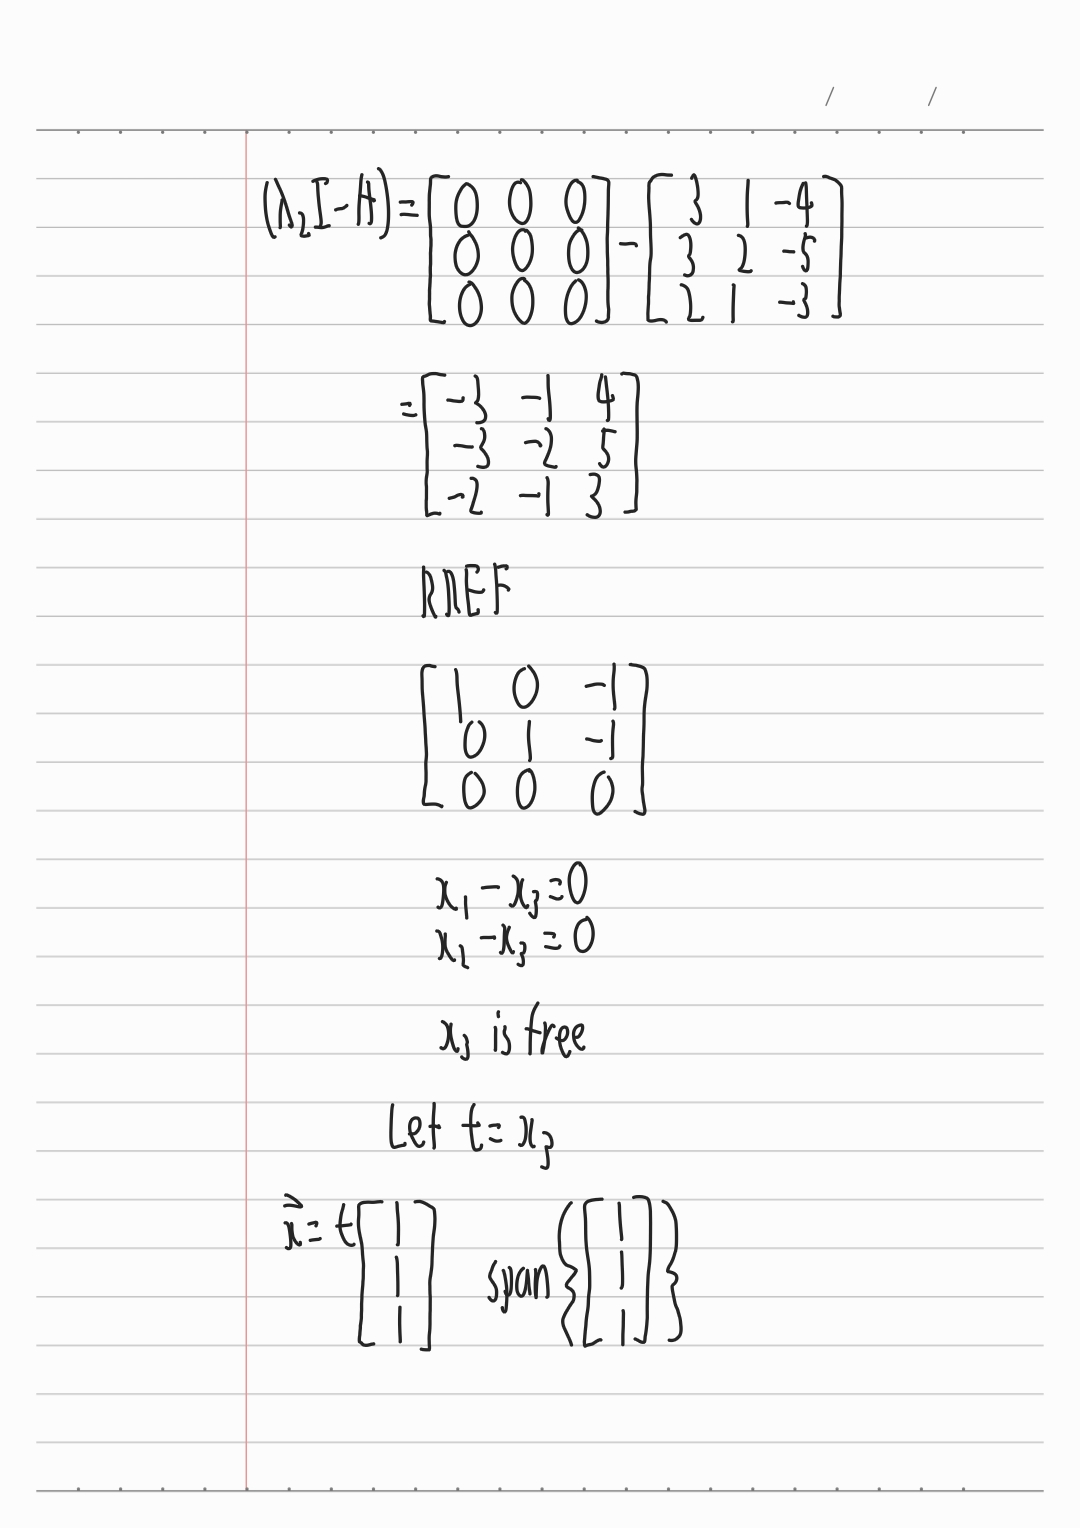 (λ₂I-A) = [0 0 0; 0 0 0; 0 0 0] - [3 1 -4; 3 2 -5; 2 1 -3]
= [-3 -1 4; -3 -2 5; -2 -1 3]
RREF
[1 0 -1; 0 1 -1; 0 0 0]
x₁ - x₃ = 0
x₂ - x₃ = 0
x₃ is free
Let t = x₃
x⃗ = t[1; 1; 1] span{[1; 1; 1]}